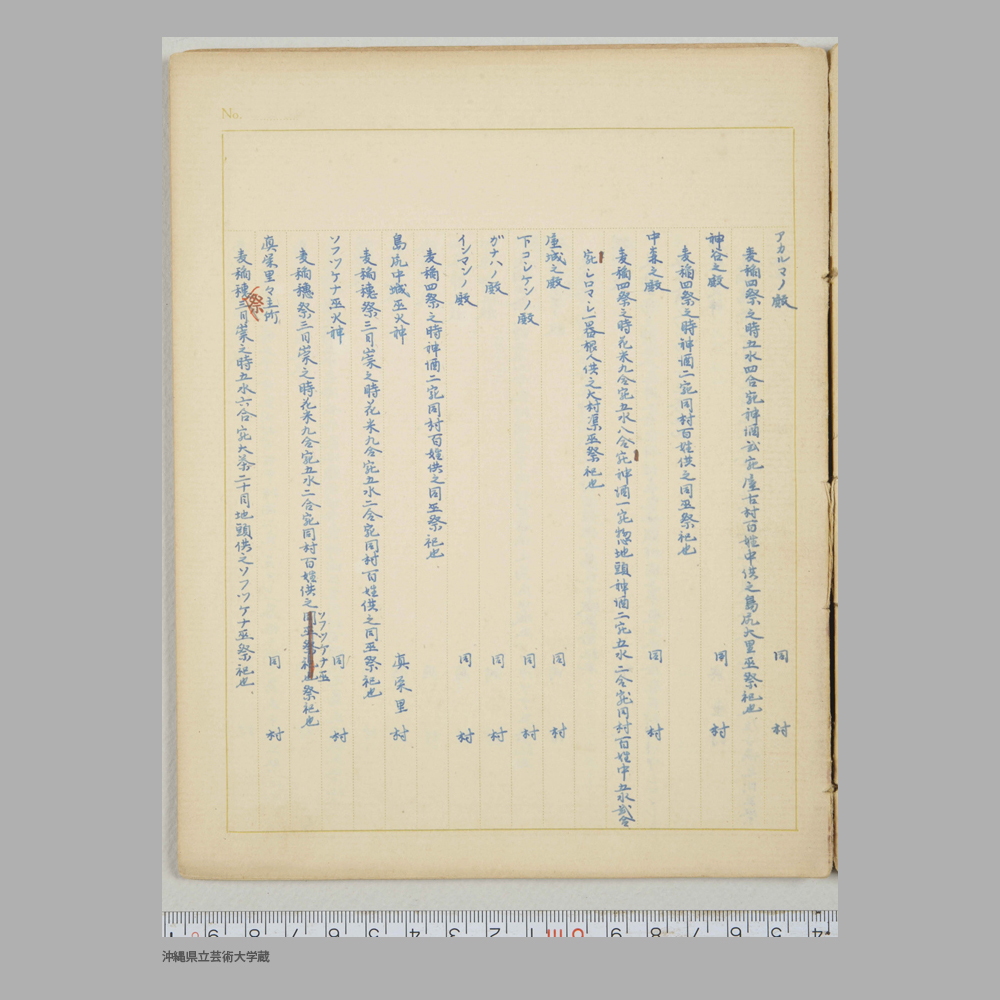 No.
アカルマノ殿 同 村
麦稲四祭之時五水四合宛神酒貳宛座古村百姓中供之島尻大里巫祭祀也
神谷之殿 同 村
麦稲四祭之時神酒二宛同村百姓供之同巫祭祀也
中森之殿 同 村
麦稲四祭之時花米九合宛五水八合宛神酒一宛惣地頭神酒二宛五水二合宛同村百姓中五水貳合
宛シロマシ一器根人供之大村渠巫祭祀也
座城之殿 同 村
下コシケンノ殿 同 村
ガナハノ殿 同 村
インマンノ殿 同 村
麦稲四祭之時神酒二宛同村百姓供之同巫祭祀也
島尻中城巫火神 真栄里村
麦稲穂祭三日崇之時花米九合宛五水二合宛同村百姓供之同巫祭祀也
ソフツケナ巫火神 同 村
麦稲穂祭三日崇之時花米九合宛五水二合宛同村百姓供之同巫祭祀也祭祀也
ソフツケナ巫
真栄里々主所 同 村
麦稲穂祭三日崇之時五水六合宛大茶二十目地頭供之ソフツケナ巫祭祀也
沖縄県立芸術大学蔵